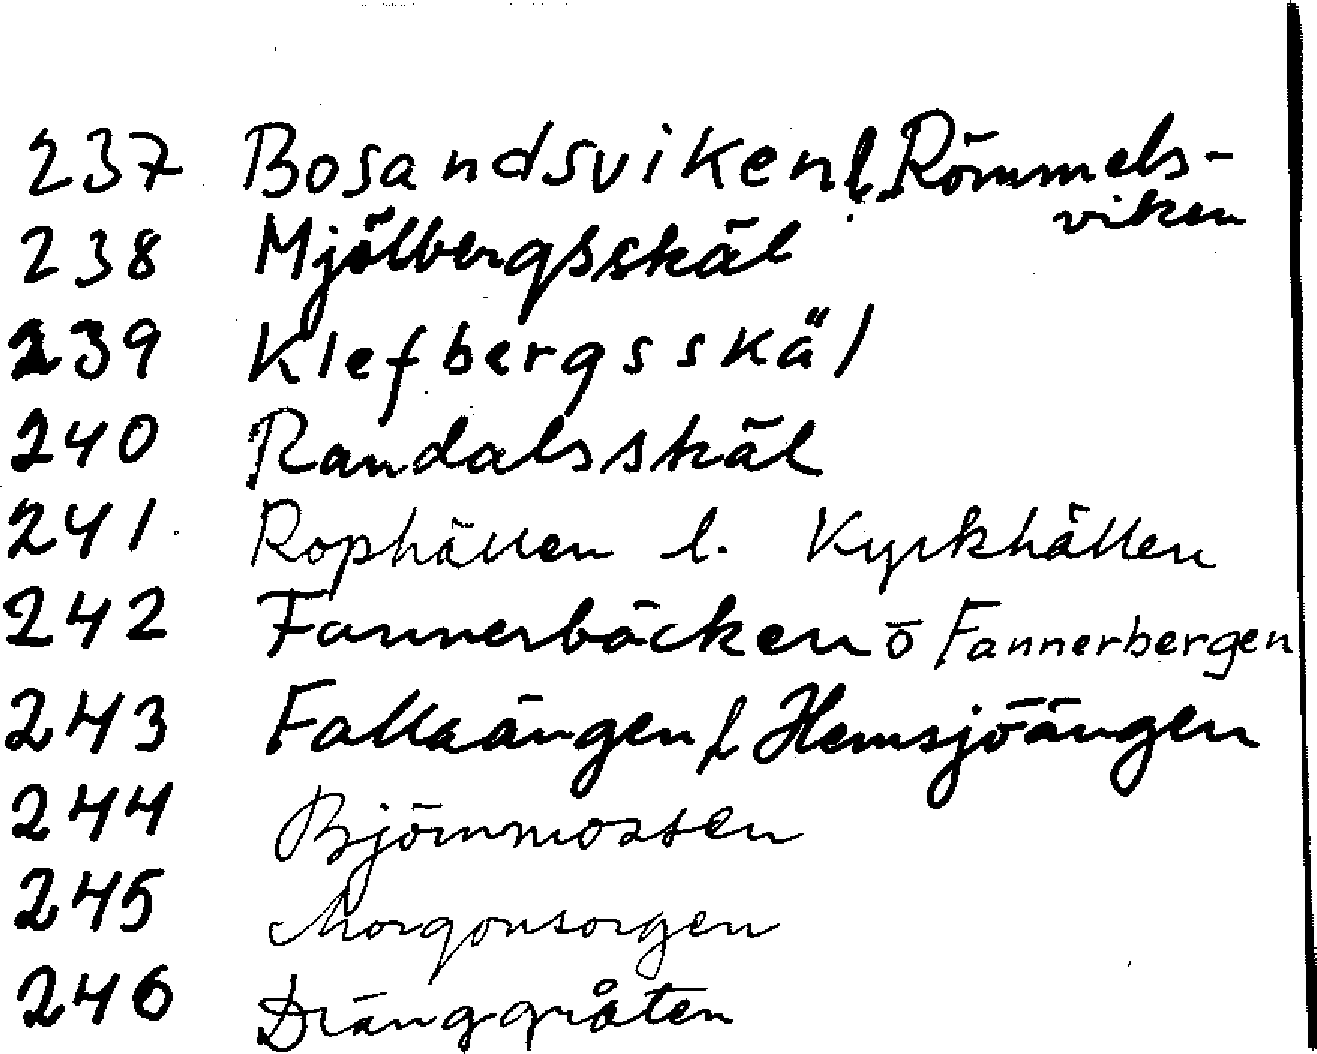 237 Bosandsviken l. Römmels-
viken
238 Mjölbergsskäl
239 Klefbergsskäl
240 Randalsskäl
241 Rophällen l. Kyrkhällen
242 Fannerbäcken o Fannerbergen
243 Fallaängen l Hemsjöängen
244 Björnmossen
245 Morgonsorgen
246 Dränggråten